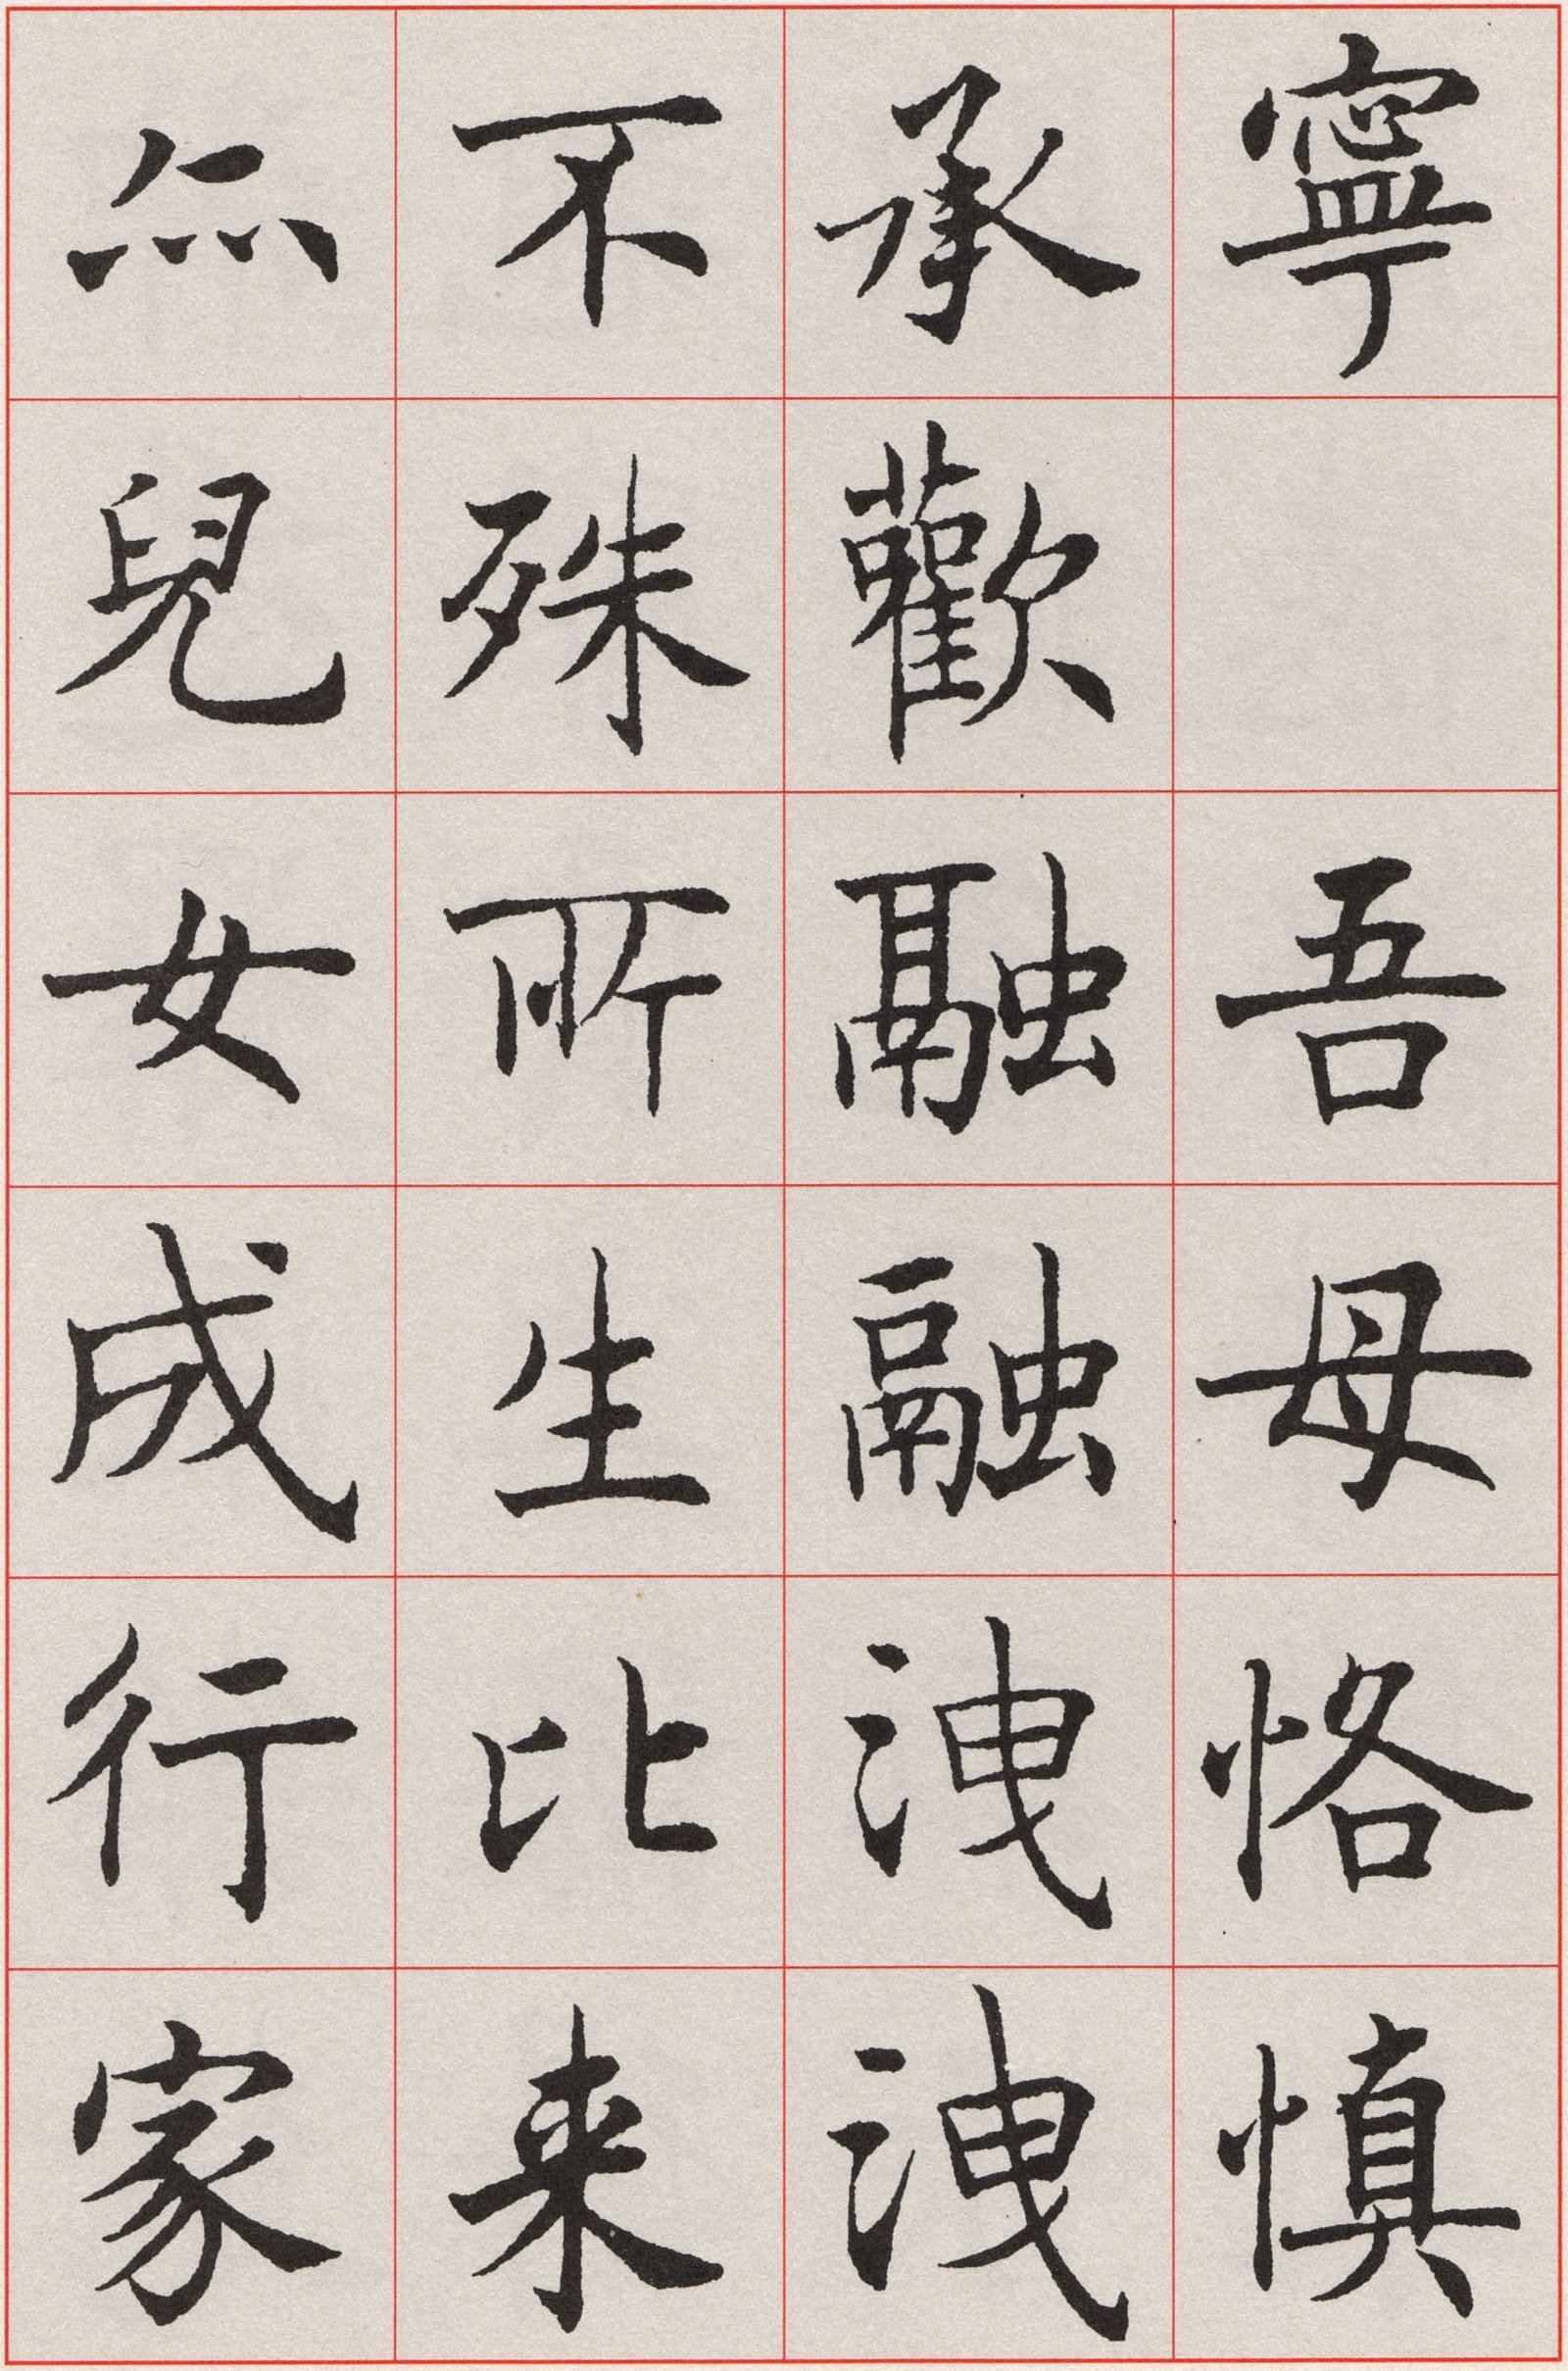 寧　吾母恪慎
承歡融融洩洩
不殊所生比来
無兒女成行家